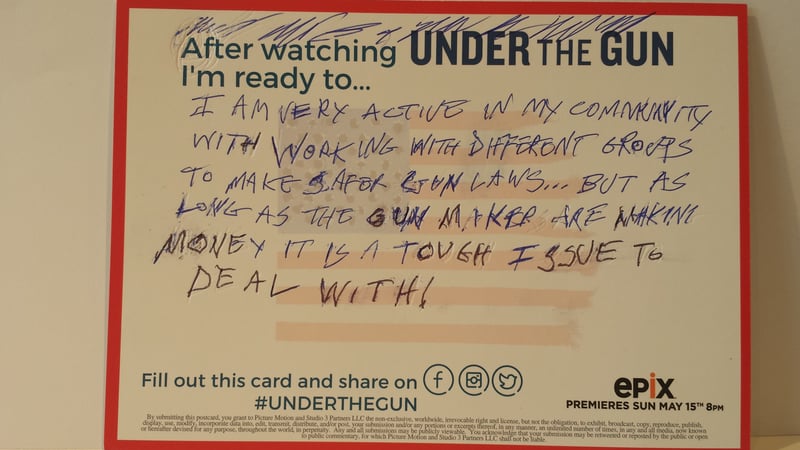 After watching UNDER THE GUN
I'm ready to...
I AM VERY ACTIVE IN MY COMMUNITY
WITH WORKING WITH DIFFERENT GROUPS
TO MAKE SAFER GUN LAWS... BUT AS
LONG AS THE GUN MAKER ARE MAKING
MONEY IT IS A TOUGH ISSUE TO
DEAL WITH!
Fill out this card and share on
#UNDERTHEGUN
epix
PREMIERES SUN MAY 15TH 8PM
By submitting this postcard, you grant to Picture Motion and Studio 3 Partners LLC the non-exclusive, worldwide, irrevocable right and license, but not the obligation, to exhibit, broadcast, copy, reproduce, publish,
display, use, modify, incorporate data into, edit, transmit, distribute, and/or post, your submission and/or any portions or excerpts thereof, in any manner, an unlimited number of times, in any and all media, now known
or hereafter devised for any purpose, throughout the world, in perpetuity. Any and all submissions may be publicly viewable. You acknowledge that your submission may be retweeted or reposted by the public or open
to public commentary, for which Picture Motion and Studio 3 Partners LLC shall not be liable.